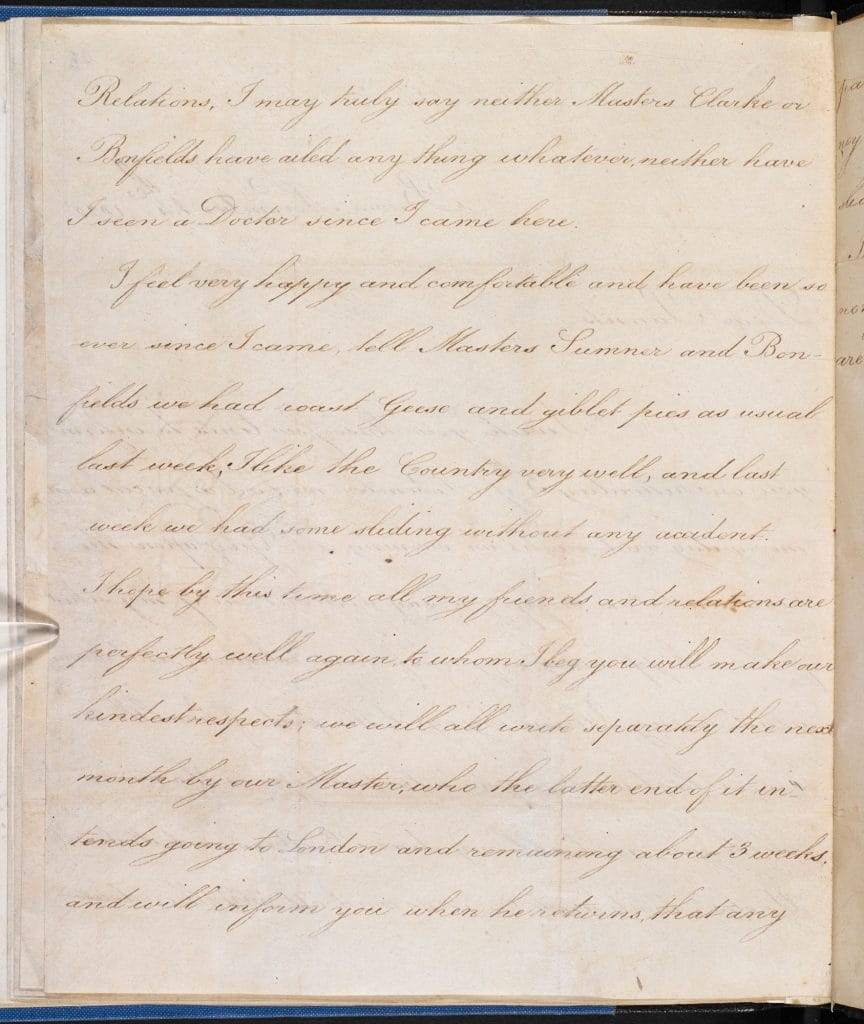 Relations, I may truly say neither Masters Clarke or
Bonfields have ailed any thing whatever, neither have
I seen a Doctor since I came here.
I feel very happy and comfortable and have been so
ever since I came, tell Masters Sumner and Bon-
fields we had roast Geese and giblet pies as usual
last week; I like the Country very well, and last
week we had some sliding without any accident.
I hope by this time all my friends and relations are
perfectly well again, to whom I beg you will make our
kindest respects; we will all write separately the next
month by our Master, who the latter end of it in-
tends going to London and remaining about 3 weeks,
and will inform you when he returns, that any